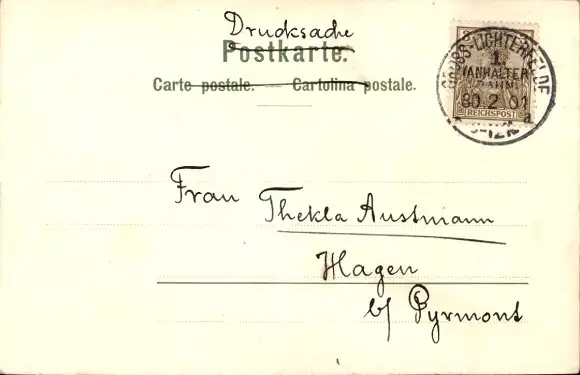 Drucksache
Postkarte.
Carte postale. — Cartolina postale.
GROSS-LICHTERFELDE
1.
(ANHALTER
BAHN)
2 01
a
REICHSPOST
Frau Thekla Austmann
Hagen
b/ Pyrmont